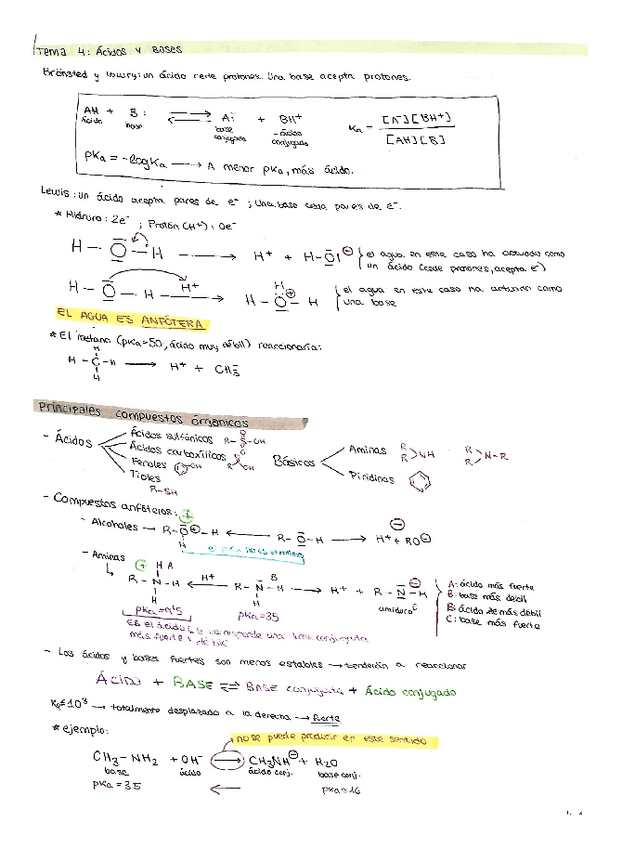 Tema 4: Ácidos y Bases
Brönsted y Lowry: un ácido cede protones. Una base acepta protones.
AH + B: ⇌ A:⁻ + BH⁺ Ka = [A⁻][BH⁺] / [AH][B]
ácido base base conjugada ácido conjugado
pKa = -log Ka → A menor pKa, más ácido.
Lewis: un ácido acepta pares de e⁻; Una base ceda pares de e⁻.
* Hidruro: 2e⁻; Protón (H⁺): 0e⁻
H - O - H → H⁺ + H-O⊖ } el agua en este caso ha actuado como
un ácido (cede protones, acepta e⁻)
H - O - H H⁺ → H - O⊕ - H } el agua en este caso ha actuado como
H
una base
EL AGUA ES ANFÓTERA
* El metano (pKa=50, ácido muy débil) reaccionaría:
H
H - C - H → H⁺ + CH₃⁻
H
Principales compuestos órganicos
- Ácidos
Ácidos sulfónicos R-S-OH
Ácidos carboxílicos
Fenoles OH
Tioles
R-SH
Básicos
Aminas R R NH R R N-R
Piridinas
- Compuestos anfóteros:
- Alcoholes → R-O⊕-H ← R-O-H → H⁺ + RO⊖
H
- Aminas
H A
R-N-H ← H⁺ R-N-H → H⁺ + R-N-H
H
B
H
amiduro C
pKa=9'5
pKa=35
A: ácido más fuerte
B: base más débil
B: ácido más débil
C: base más fuerte
más fuerte
- Los ácidos y bases fuertes son menos estables → tenderán a reaccionar
Ácido + BASE ⇌ Base conjugada + Ácido conjugado
10³ → totalmente desplazado a la derecha → fuerte
* ejemplo:
no se puede producir en este sentido
CH₃-NH₂ + OH⁻ → CH₃NH⊖ + H₂O
base ácido ácido conj. base conj.
pKa=35 ← pKa=16